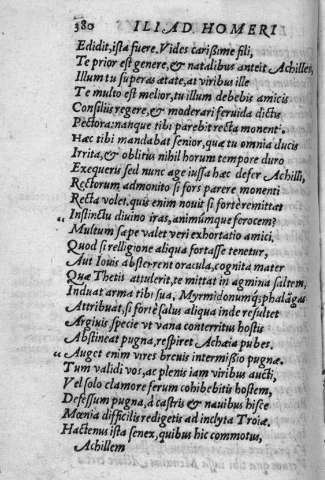 380 ILIAD. HOMERI
Edidit, ista fuere. Vides carißime fili,
Te prior est genere, & natalibus anteit Achilles,
Illum tu superas ætate, at viribus ille
Te multo est melior, tu illum debebis amicis
Consiliis regere, & moderari feruida dictis
Pectora: nanque tibi parebit recta monenti.
Hæc tibi mandabat senior, quæ tu omnia ducis
Irrita, & oblitus nihil horum tempore duro
Exequeris sed nunc age iussa hæc defer Achilli,
Rectorum admonito si fors parere monenti
Recta volet. quis enim nouit si forte remittat
„ Instinctu diuino iras, animúmque ferocem?
Multum sæpe valet veri exhortatio amici,
Quod si relligione aliqua fortasse tenetur,
Aut Iouis absterrent oracula, cognita mater
Quæ Thetis attulerit, te mittat in agmina saltem,
Induat arma tibi sua, Myrmidonumq; phalāgas
Attribuat, si fortè salus aliqua inde resultet
Argiuis specie vt vana conterritus hostis
Abstineat pugna, respiret Achaia pubes.
„ Auget enim vires breuis intermißio pugnæ.
Tum validi vos, ac plenis iam viribus aucti,
Vel solo clamore ferum cohibebitis hostem,
Defessum pugna, à castris & nauibus hisce
Mœnia difficilis redigetis ad inclyta Troiæ.
Hactenus ista senex, quibus hic commotus,
Achillem